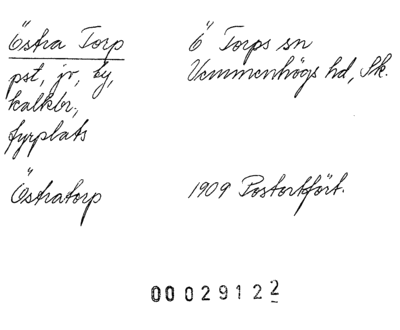 Östra Torp
Ö Torps sn
pst, jv, by,
Vemmenhögs hd, Sk.
kalkbr,
fyrplats
Östratorp
1909 Postortfört.
00 029122